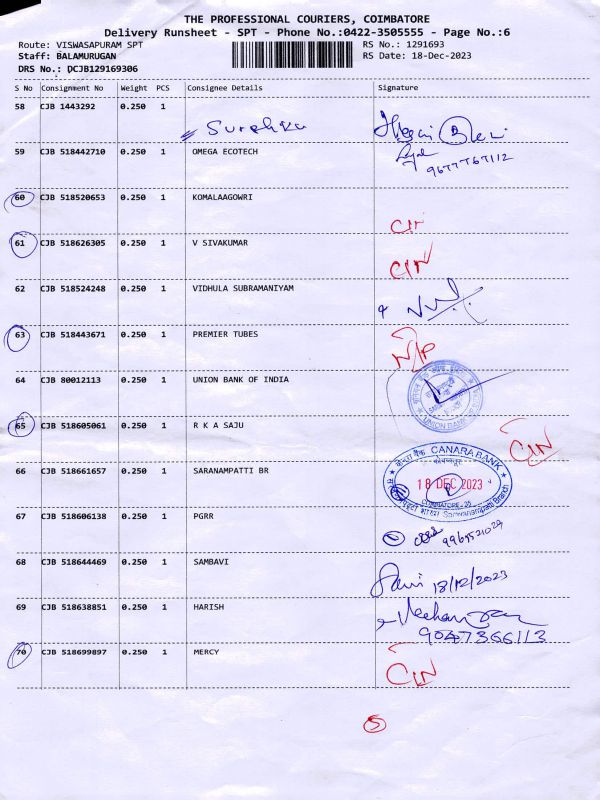 THE PROFESSIONAL COURIERS, COIMBATORE
Delivery Runsheet - SPT - Phone No.:0422-3505555 - Page No.:6
Route: VISWASAPURAM SPT RS No.: 1291693
Staff: BALAMURUGAN RS Date: 18-Dec-2023
DRS No.: DCJB129169306
S No Consignment No Weight PCS Consignee Details Signature
58 CJB 1443292 0.250 1
Surekha
59 CJB 518442710 0.250 1 OMEGA ECOTECH
9677767112
60 CJB 518520653 0.250 1 KOMALAAGOWRI
CIN
61 CJB 518626305 0.250 1 V SIVAKUMAR
CIN
62 CJB 518524248 0.250 1 VIDHULA SUBRAMANIYAM
63 CJB 518443671 0.250 1 PREMIER TUBES
N/P
64 CJB 80012113 0.250 1 UNION BANK OF INDIA
UNION BANK
65 CJB 518605061 0.250 1 R K A SAJU
CIN
66 CJB 518661657 0.250 1 SARANAMPATTI BR
CANARA BANK
18 DEC 2023
COIMBATORE-35
Saravanampatti Branch
67 CJB 518606138 0.250 1 PGRR
68 CJB 518644469 0.250 1 SAMBAVI
18/12/2023
69 CJB 518638851 0.250 1 HARISH
9047366113
70 CJB 518699897 0.250 1 MERCY
CIN
5